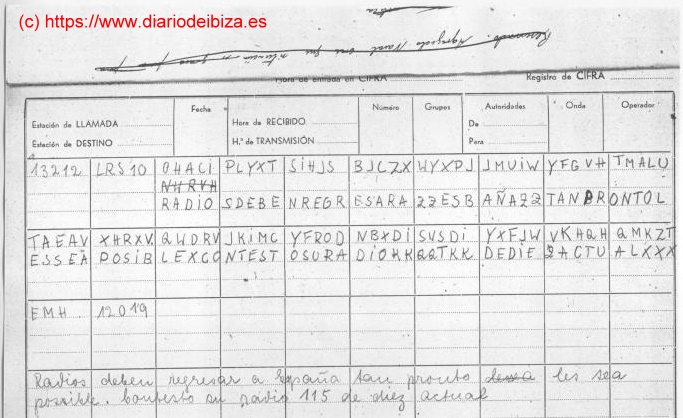 (c) https://www.diariodeibiza.es
Hora de Entrada en CIFRA
Registro de CIFRA
Estación de LLAMADA
Estación de DESTINO
Fecha
Hora de RECIBIDO
H.ª de TRANSMISIÓN
Número
Grupos
Autoridades
De
Para
Onda
Operador
13212 LRS10 OHACI PLYXT SIHJS BJCZX WYXPJ JMUIW YFGVH TMALU
NHRVH
RADIO SDEBE NREGR ESARA ZZESB AÑAZZ TANPR ONTOL
TAEAV XHRXV QWDRV JKIMC YFROD NBXDI SUSDI YXFJW VKHQH QMKZT
ESSEA POSIB LEXCO NTEST OSURA DIOKK QQTKK DEDIE ZACTU ALXXX
EMH 12019
Radios deben regresar a España tan pronto les sea
possible. Contesto su radio 115 de diez actual